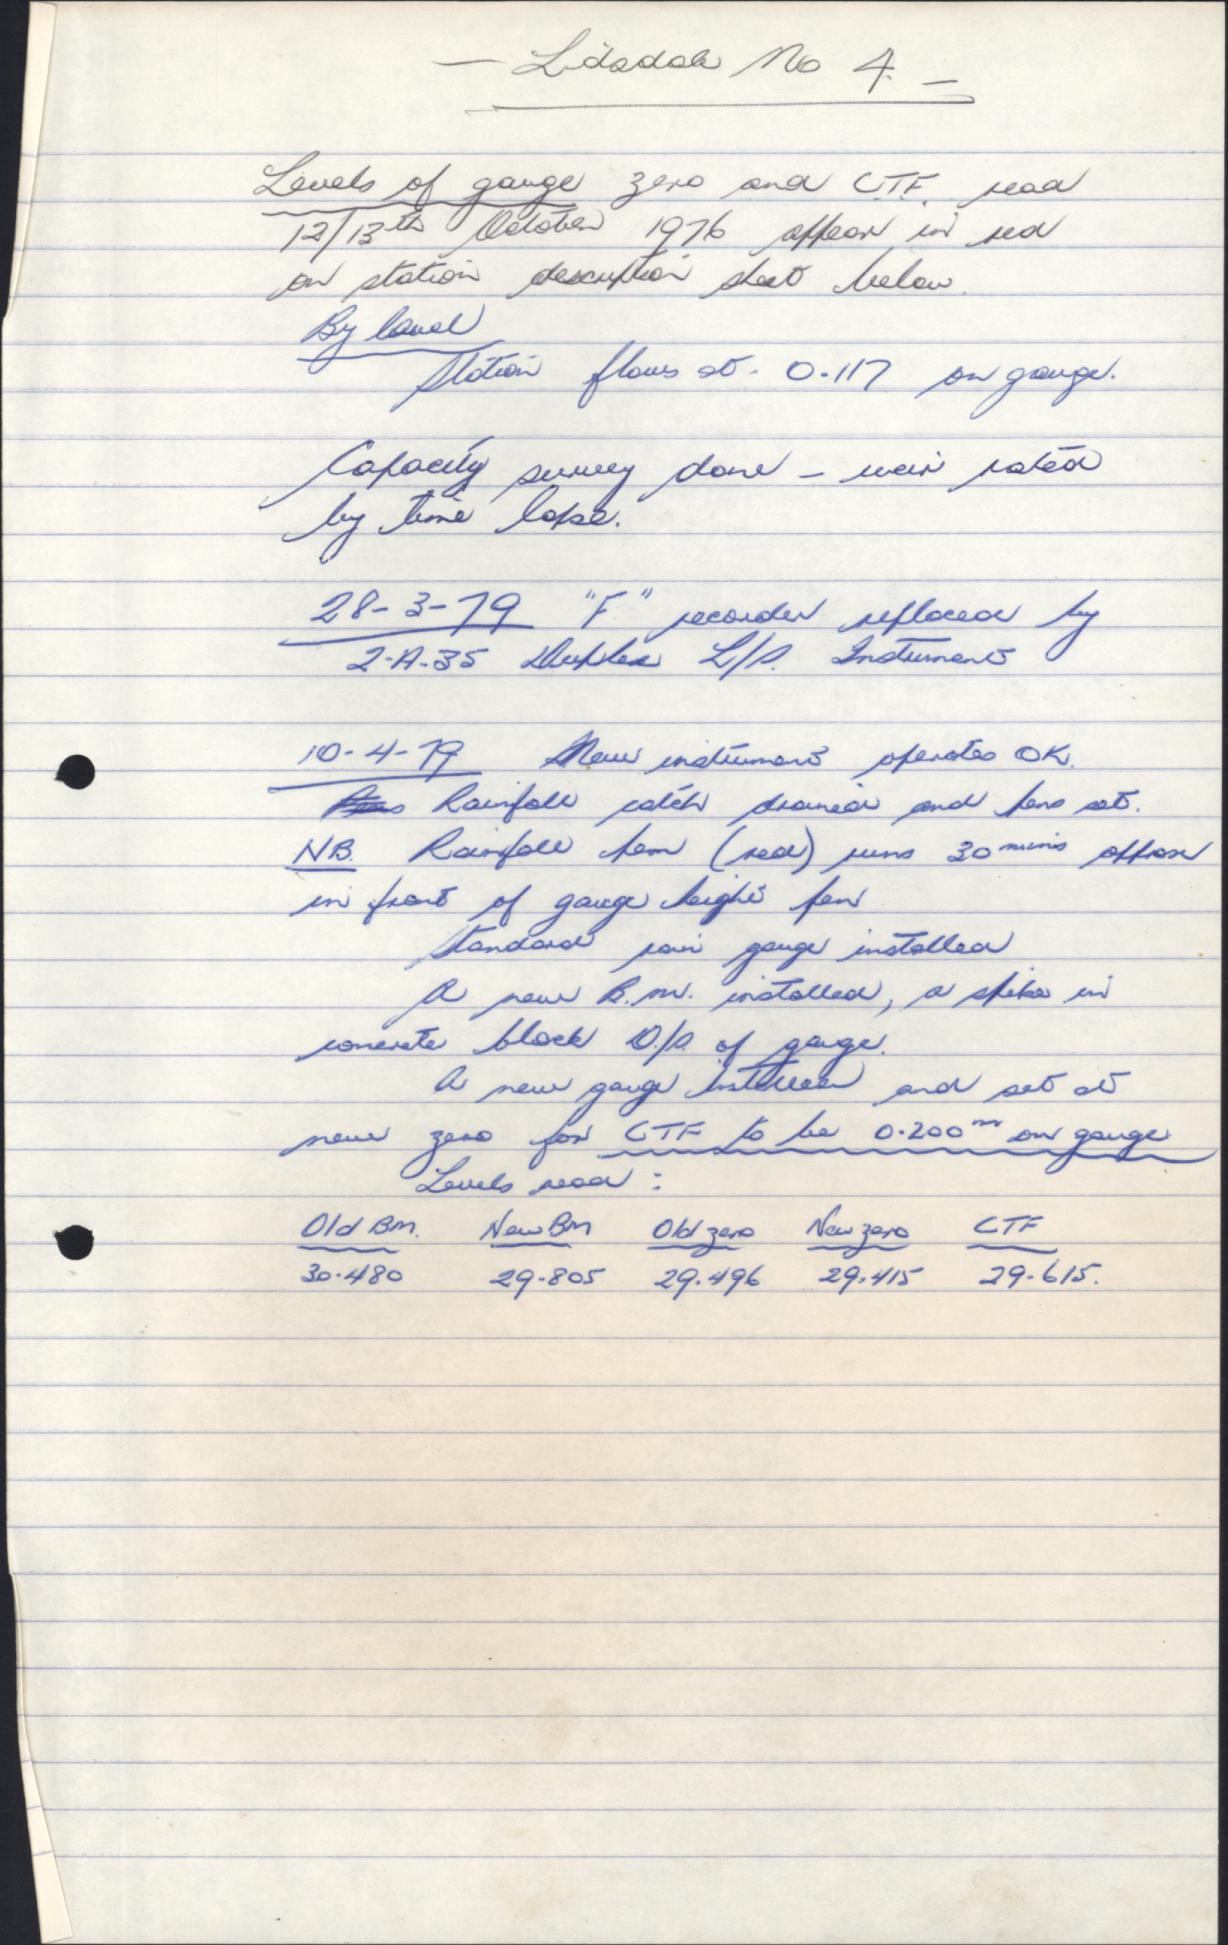 - Lidsdale No 4 -
Levels of gauge zero and CTF. read
12/13th October 1976 appear in red
on station description sheet below.
By level
Station flows at. 0.117 on gauge.
Capacity survey done - weir rated
by time lapse.
28-3-79 "F" recorder replaced by
2-A-35 Duplex L/P. Instrument
10-4-79 New instrument operates OK.
Rainfall catch drained and pens set.
NB. Rainfall pen (red) runs 30 mins approx
in front of gauge height pen
Standard rain gauge installed
A new B.M. installed, a spike in
concrete block D/S. of gauge.
A new gauge installed and set at
new zero for CTF to be 0.200m on gauge
Levels read :
Old BM. New BM Old zero New zero CTF
30.480 29.805 29.496 29.415 29.615.